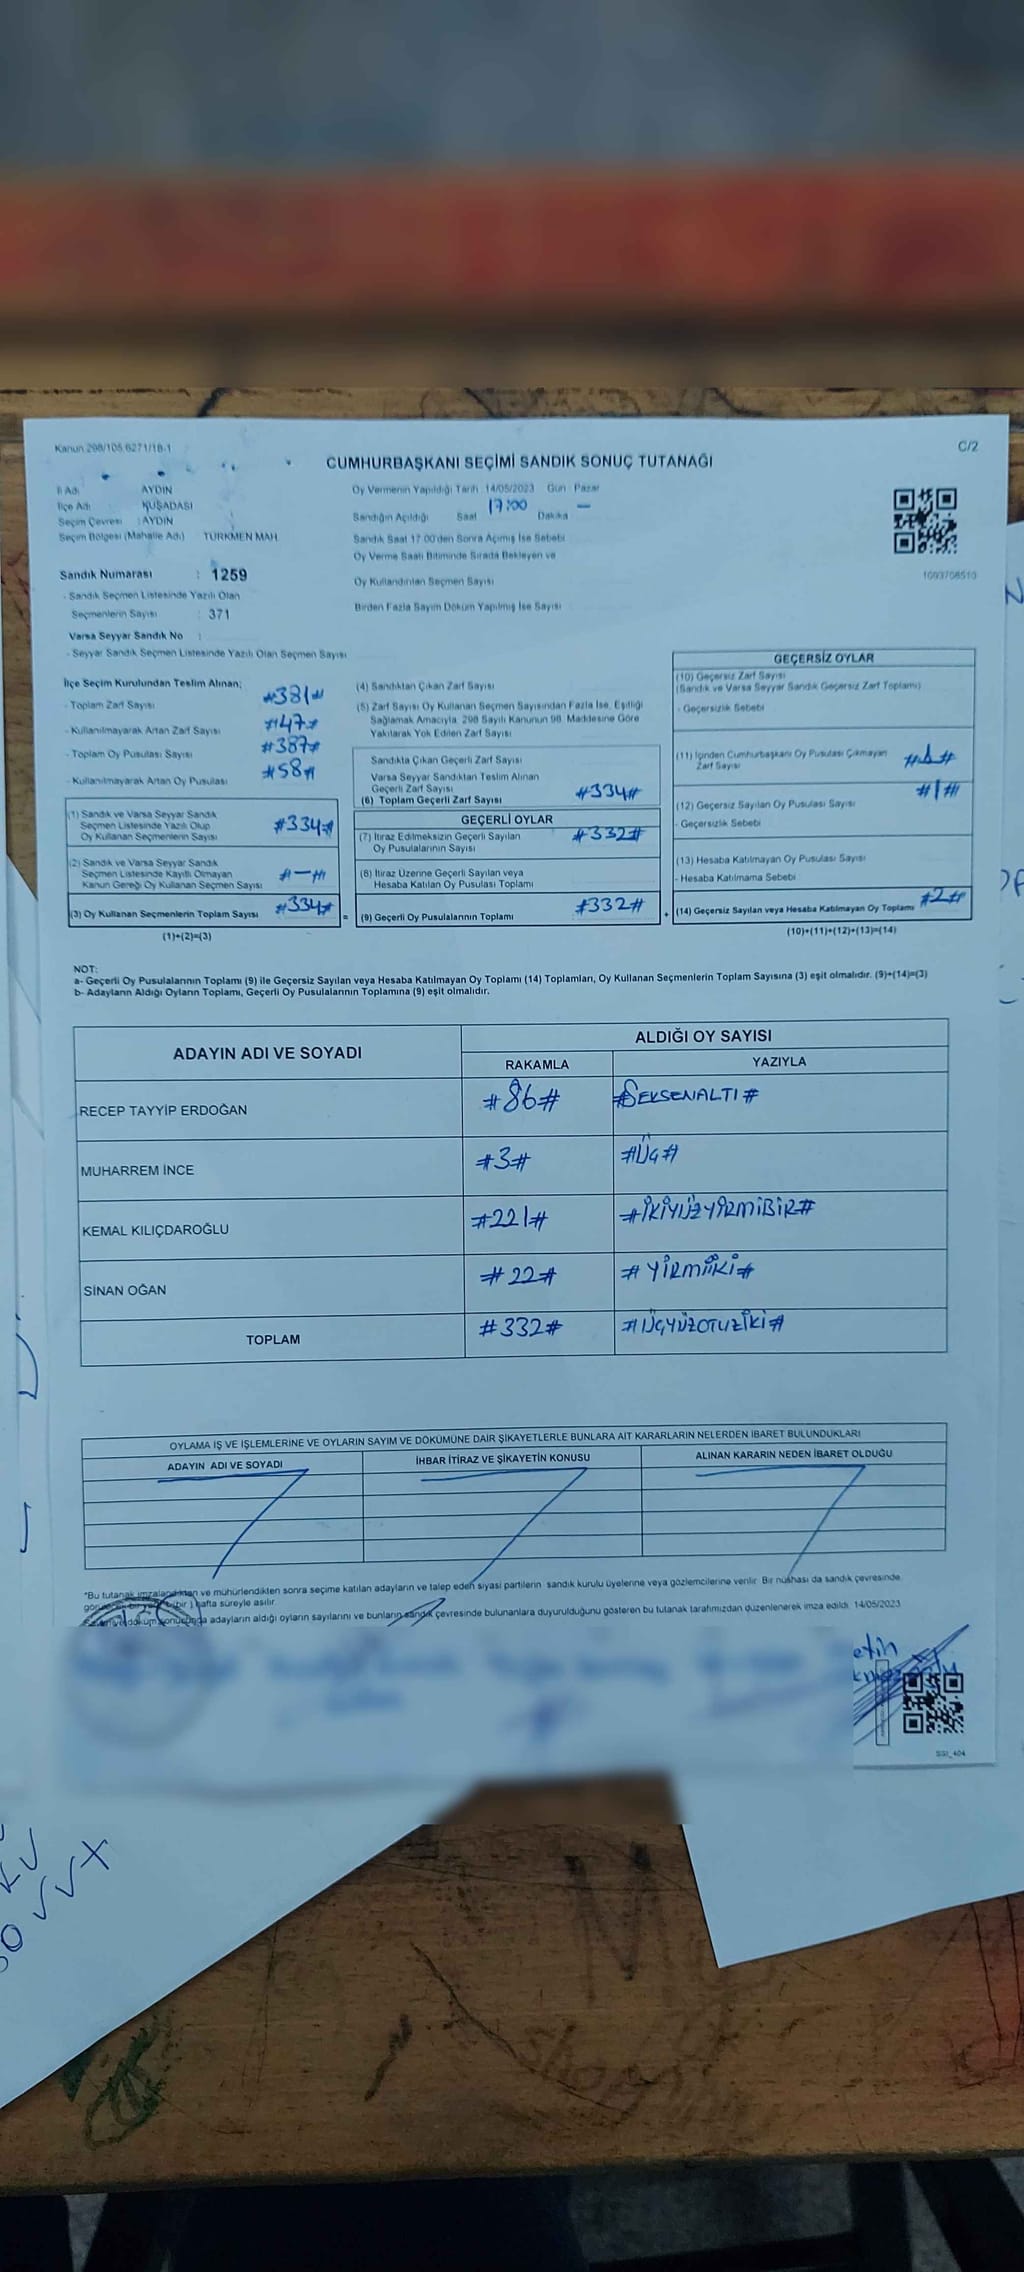 Kanun 298/105 6271/18-1
C/2
CUMHURBAŞKANI SEÇİMİ SANDIK SONUÇ TUTANAĞI
İl Adı AYDIN
İlçe Adı KUŞADASI
Seçim Çevresi : AYDIN
Seçim Bölgesi (Mahalle Adı) TÜRKMEN MAH.
Sandık Numarası : 1259
- Sandık Seçmen Listesinde Yazılı Olan
Seçmenlerin Sayısı : 371
Varsa Seyyar Sandık No :
- Seyyar Sandık Seçmen Listesinde Yazılı Olan Seçmen Sayısı
Oy Vermenin Yapıldığı Tarih 14/05/2023 Gün : Pazar
Sandığın Açıldığı Saat 17:00 Dakika —
Sandık Saat 17.00'den Sonra Açılmış İse Sebebi
Oy Verme Saati Bitiminde Sırada Bekleyen ve
Oy Kullandırılan Seçmen Sayısı
Birden Fazla Sayım Döküm Yapılmış İse Sayısı
1093708510
İlçe Seçim Kurulundan Teslim Alınan;
- Toplam Zarf Sayısı #381#
- Kullanılmayarak Artan Zarf Sayısı #47#
- Toplam Oy Pusulası Sayısı #387#
- Kullanılmayarak Artan Oy Pusulası #58#
(1) Sandık ve Varsa Seyyar Sandık
Seçmen Listesinde Yazılı Olup
Oy Kullanan Seçmenlerin Sayısı #334#
(2) Sandık ve Varsa Seyyar Sandık
Seçmen Listesinde Kayıtlı Olmayan
Kanun Gereği Oy Kullanan Seçmen Sayısı #—#
(3) Oy Kullanan Seçmenlerin Toplam Sayısı #334#
(1)+(2)=(3)
(4) Sandıktan Çıkan Zarf Sayısı
(5) Zarf Sayısı Oy Kullanan Seçmen Sayısından Fazla İse, Eşitliği
Sağlamak Amacıyla, 298 Sayılı Kanunun 98. Maddesine Göre
Yakılarak Yok Edilen Zarf Sayısı
Sandıkta Çıkan Geçerli Zarf Sayısı
Varsa Seyyar Sandıktan Teslim Alınan
Geçerli Zarf Sayısı
(6) Toplam Geçerli Zarf Sayısı #334#
GEÇERLİ OYLAR
(7) İtiraz Edilmeksizin Geçerli Sayılan
Oy Pusulalarının Sayısı #332#
(8) İtiraz Üzerine Geçerli Sayılan veya
Hesaba Katılan Oy Pusulası Toplamı
= (9) Geçerli Oy Pusulalarının Toplamı #332# +
GEÇERSİZ OYLAR
(10) Geçersiz Zarf Sayısı
(Sandık ve Varsa Seyyar Sandık Geçersiz Zarf Toplamı)
- Geçersizlik Sebebi
(11) İçinden Cumhurbaşkanı Oy Pusulası Çıkmayan
Zarf Sayısı #1#
(12) Geçersiz Sayılan Oy Pusulası Sayısı #1#
- Geçersizlik Sebebi
(13) Hesaba Katılmayan Oy Pusulası Sayısı
- Hesaba Katılmama Sebebi
(14) Geçersiz Sayılan veya Hesaba Katılmayan Oy Toplamı #2#
(10)+(11)+(12)+(13)=(14)
NOT:
a- Geçerli Oy Pusulalarının Toplamı (9) ile Geçersiz Sayılan veya Hesaba Katılmayan Oy Toplamı (14) Toplamları, Oy Kullanan Seçmenlerin Toplam Sayısına (3) eşit olmalıdır. (9)+(14)=(3)
b- Adayların Aldığı Oyların Toplamı, Geçerli Oy Pusulalarının Toplamına (9) eşit olmalıdır.
ADAYIN ADI VE SOYADI ALDIĞI OY SAYISI
RAKAMLA YAZIYLA
RECEP TAYYİP ERDOĞAN #86# #SEKSENALTI#
MUHARREM İNCE #3# #ÜÇ#
KEMAL KILIÇDAROĞLU #221# #İKİYÜZYİRMİBİR#
SİNAN OĞAN #22# #YİRMİİKİ#
TOPLAM #332# #ÜÇYÜZOTUZİKİ#
OYLAMA İŞ VE İŞLEMLERİNE VE OYLARIN SAYIM VE DÖKÜMÜNE DAİR ŞİKAYETLERLE BUNLARA AİT KARARLARIN NELERDEN İBARET BULUNDUKLARI
ADAYIN ADI VE SOYADI İHBAR İTİRAZ VE ŞİKAYETİN KONUSU ALINAN KARARIN NEDEN İBARET OLDUĞU
*Bu tutanak imzalandıktan ve mühürlendikten sonra seçime katılan adayların ve talep eden siyasi partilerin sandık kurulu üyelerine veya gözlemcilerine verilir. Bir nüshası da sandık çevresinde,
hafta süreyle asılır.
döküm sonucunda adayların aldığı oyların sayılarını ve bunların sandık çevresinde bulunanlara duyurulduğunu gösteren bu tutanak tarafımızdan düzenlenerek imza edildi. 14/05/2023
etin
SSI_404